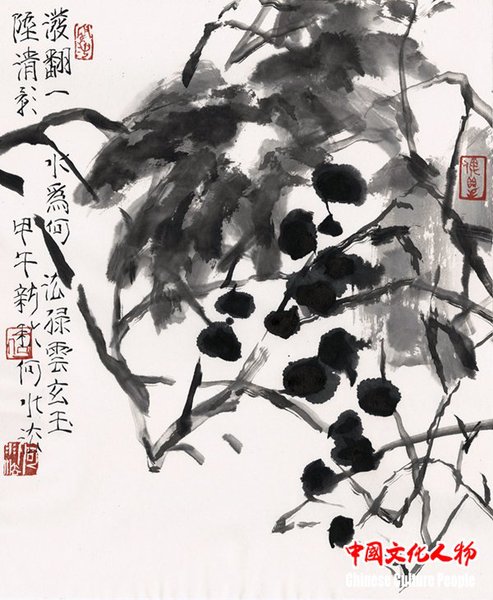 潑翻一水爲何法緑雲玄玉
陸清影甲午新秋何水法
中國文化人物
Chinese Culture People